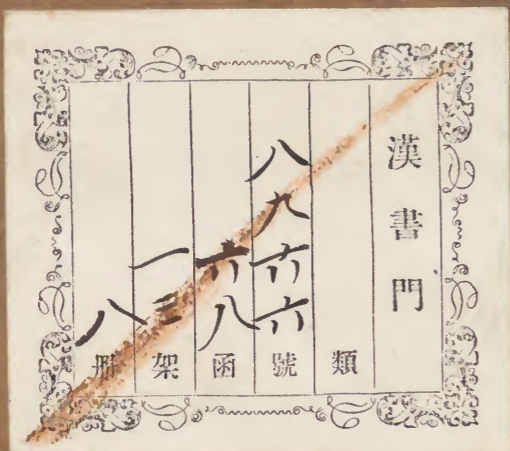 漢書門
類
八九六六號
六八函
一三架
八冊